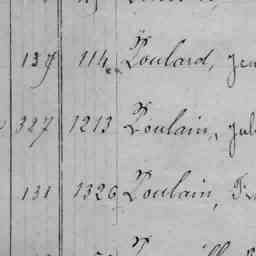 137 114 Poulard, Jea
327 1213 Poulain, Jul
131 1326 Poulain, Fr